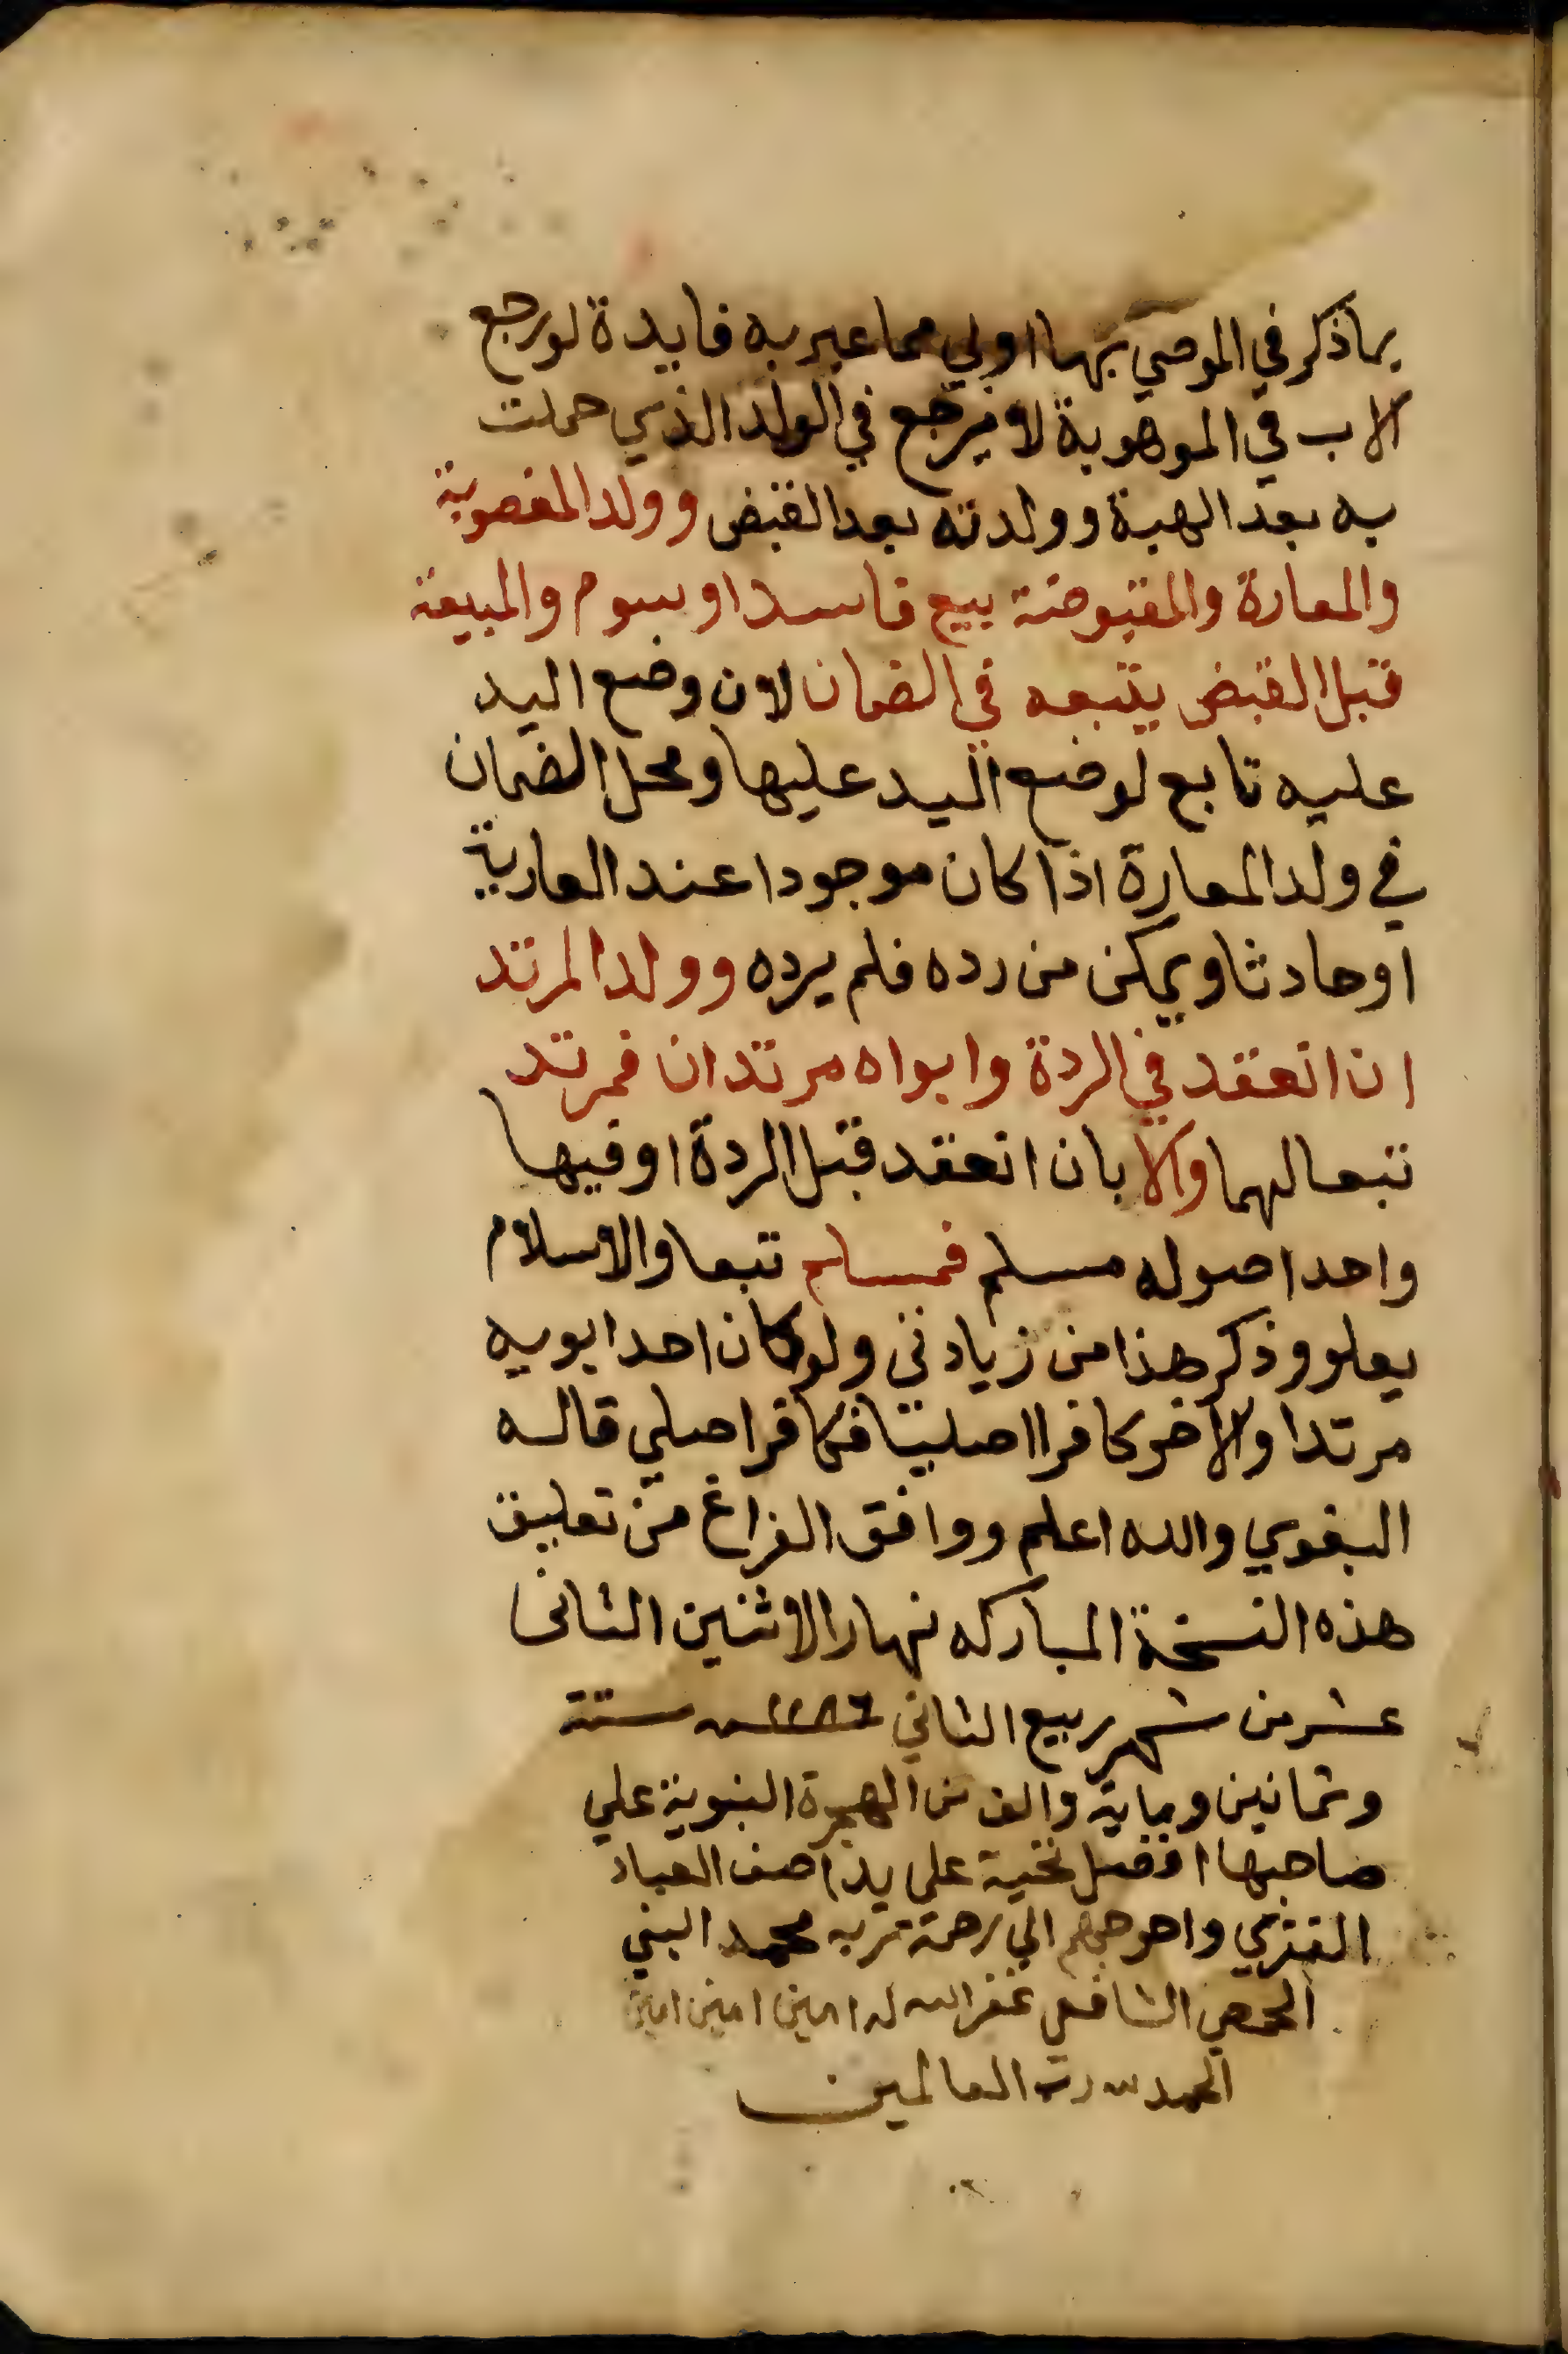 بما ذكر في الموصي بها اولي مما عبر به فايدة لو رجع
الاب في الموهوبة لا يرجع في الولد الذي حملت
به بعد الهبة وولدته بعد القبض وولد المغصوبة
والمعارة والمقبوضة ببيع فاسد او بسوم والمبيعة
قبل القبض يتبعه في الضمان لان وضع اليد
عليه تابع لوضع اليد عليها ومحل الضمان
في ولد المعارة اذا كان موجودا عند العارية
او حادثا ويمكن من رده فلم يرده وولد المرتد
ان انعقد في الردة وابواه مرتدان فمرتد
تبعا لهما والا بان انعقد قبل الردة او فيها
واحد اصوله مسلم فمسلم تبعا والاسلام
يعلو وذكر هذا من زيادتي ولو كان احد ابويه
مرتدا والاخر كافرا اصليا فكافر اصلي قاله
البغوي والله اعلم ووافق الفراغ من تعليق
هذه النسخة المباركه نهار الاثنين الثانى
عشر من شهر ربيع الثاني ١١٨٦ سنة ستة
وثمانين وماية والف من الهجرة النبوية علي
صاحبها افضل تحية على يد اضعف العباد
الفقري واحوجهم الي رحمة ربه محمد
الحمصي الشافعي غفر الله له امين امين امين
الحمد لله رب العالمين